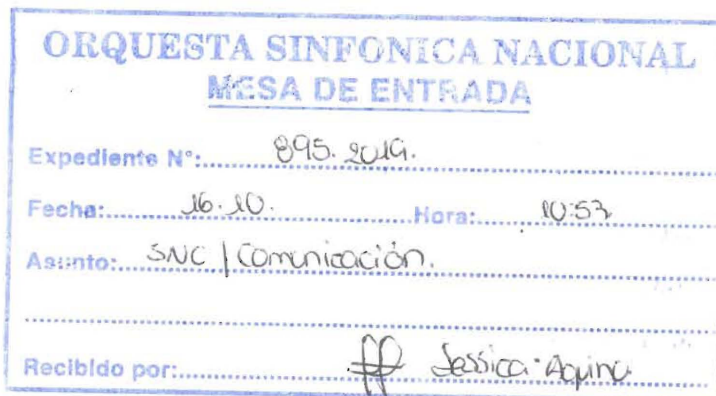 ORQUESTA SINFONICA NACIONAL
MESA DE ENTRADA
Expediente N°: 895. 2019.
Fecha: 16.10. Hora: 10:53
Asunto: SNC | Comunicación.
Recibido por: Jessica Aquino